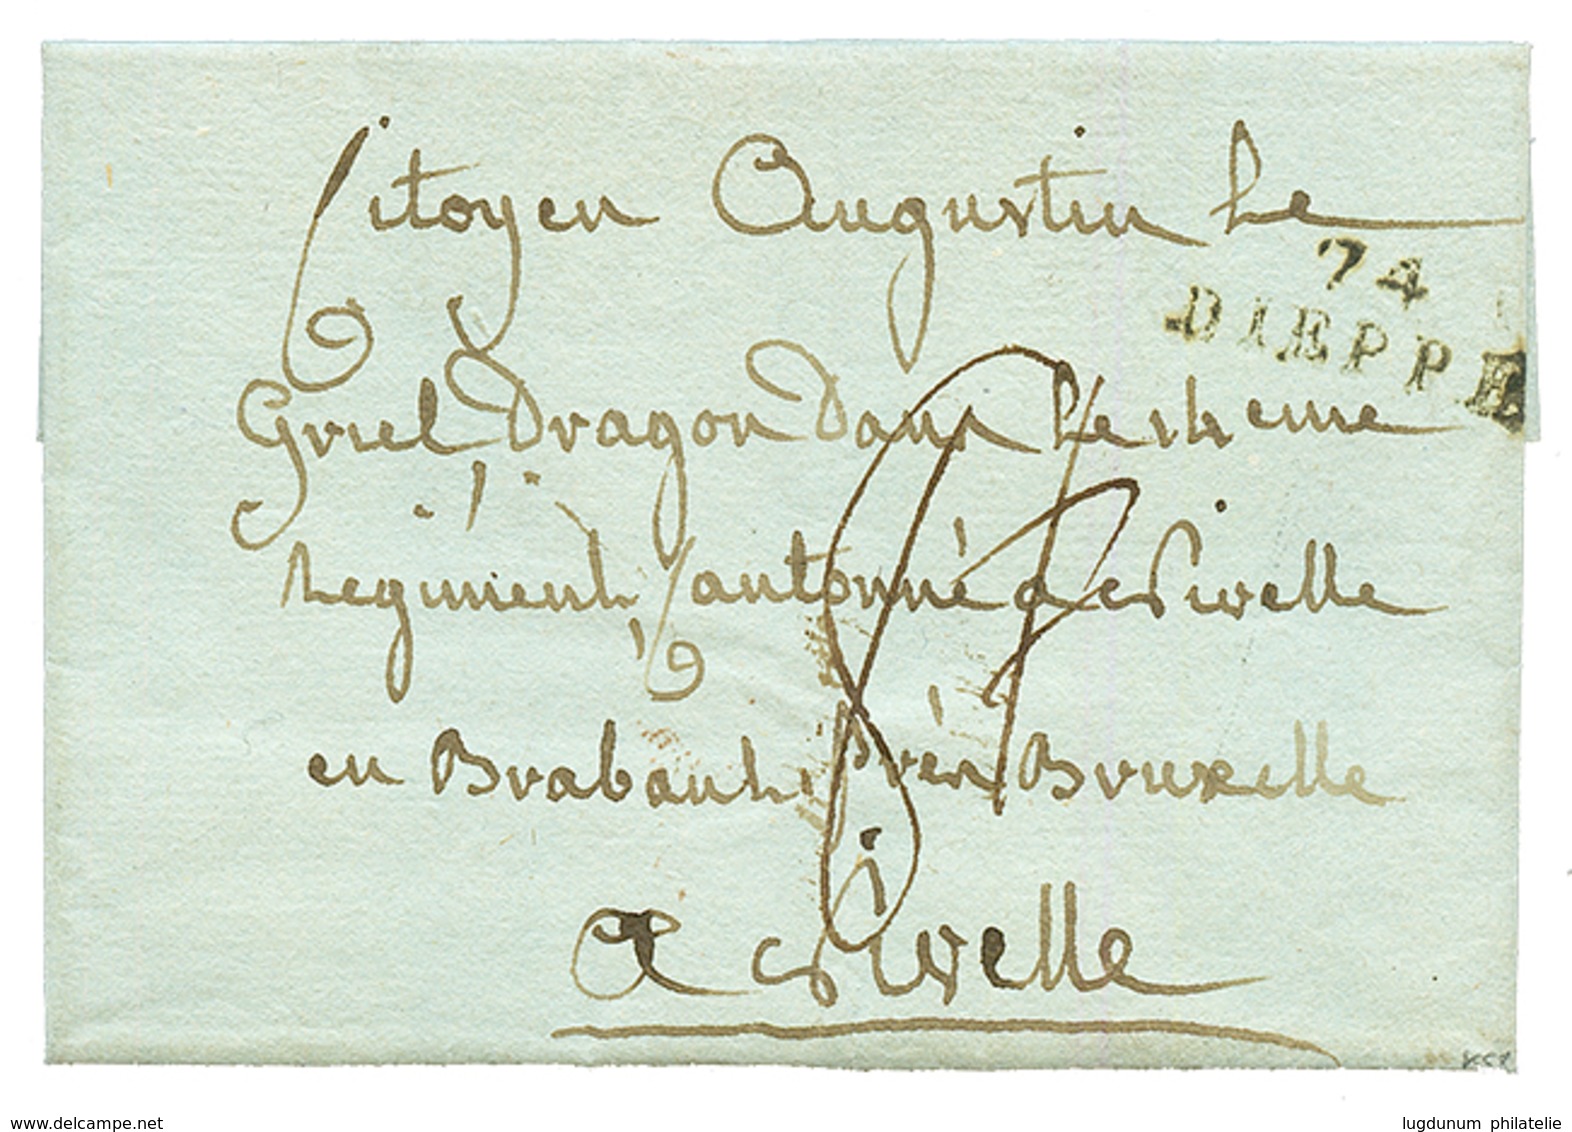 Citoyen Augustin Le
74
DIEPPE
Griel Dragon Dans Le 14 eme
Regiment Cantonné a Nivelle
en Brabant Près Bruxelle
a Nivelle
www.delcampe.net
lugdunum philatelie